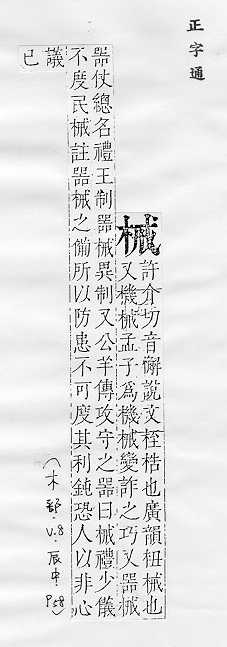 正字通
械
許介切音礉說文桎梏也廣韻杻械也
又機械孟子為機械變詐之巧又器械
器仗總名禮王制器械異制又公羊傳攻守之器曰械禮少儀
不度民械註器械之備所以防患不可度其利鈍恐人以非心
議己
(木部 V.8. 辰中. P58)